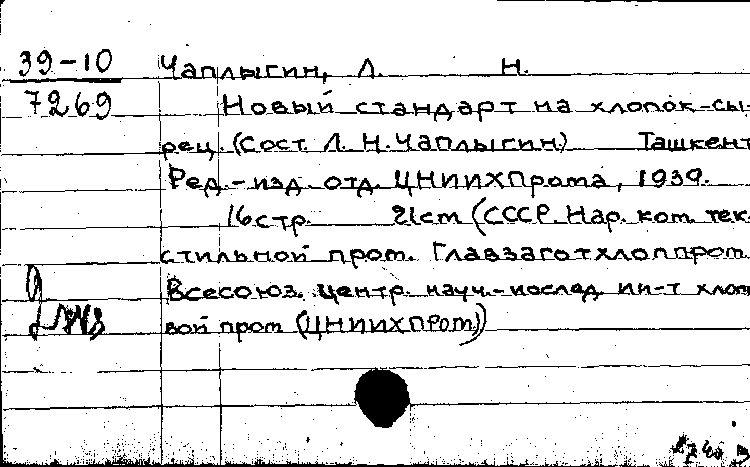 39-10 Чаплыгин, Л. Н.
7269 Новый стандарт на хлопок-сы-
рец. (Сост Л. Н. Чаплыгин) Ташкент
Ред.-изд. отд. ЦНИИХПрома, 1939.
16 стр. 21cm (СССР. Нар. ком. тек.
стильной пром. Главзаготхлоппром.
Всесоюз. центр. науч.-исслед. ин-т хлоп
вой пром (ЦНИИХПРОМ))